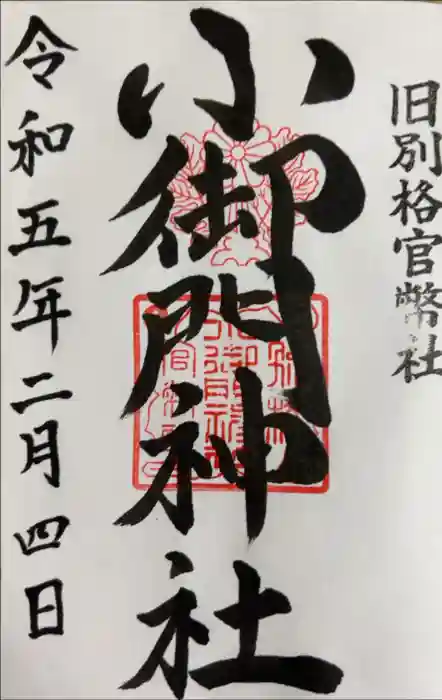 旧別格官幣社
小御門神社
令和五年二月四日